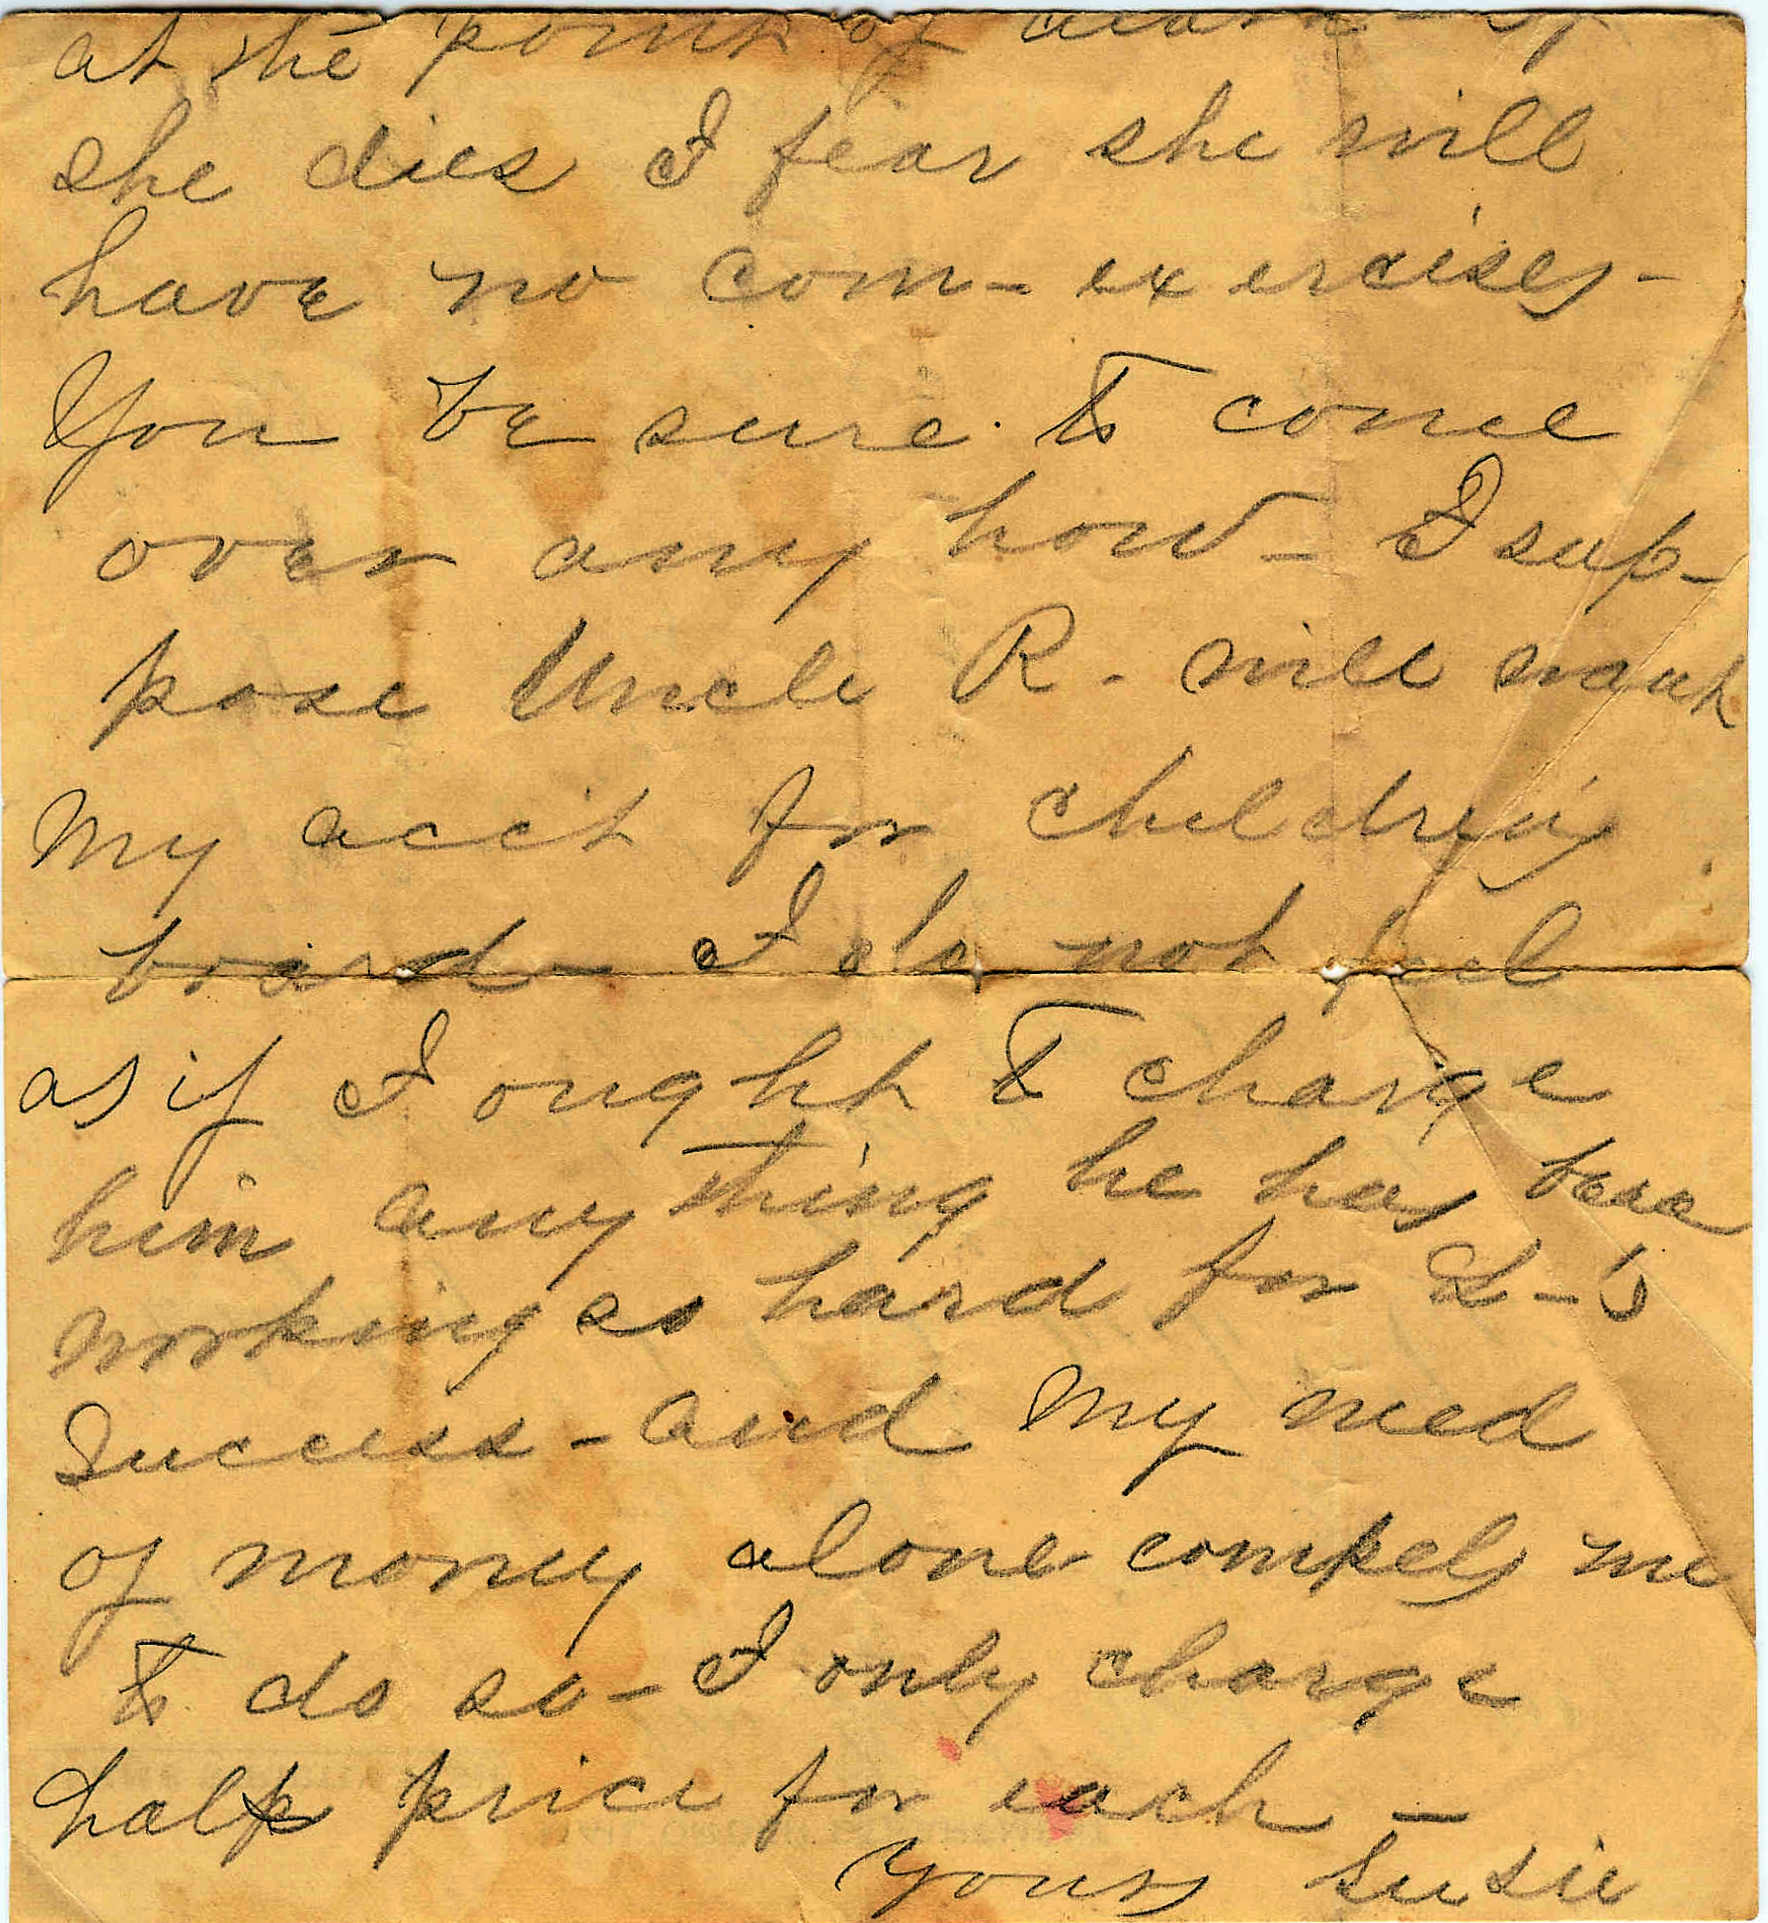 at the point of death - if
she dies I fear she will
have no com- exercises -
You be sure to come
over any how - I sup-
pose Uncle R. will want
My acc't for children's
board - I do not feel
as if I ought to charge
him anything he has been
working so hard for L-'s
Success - and My need
of money alone compels me
to do so - I only charge
half price for each -
Yours Susie